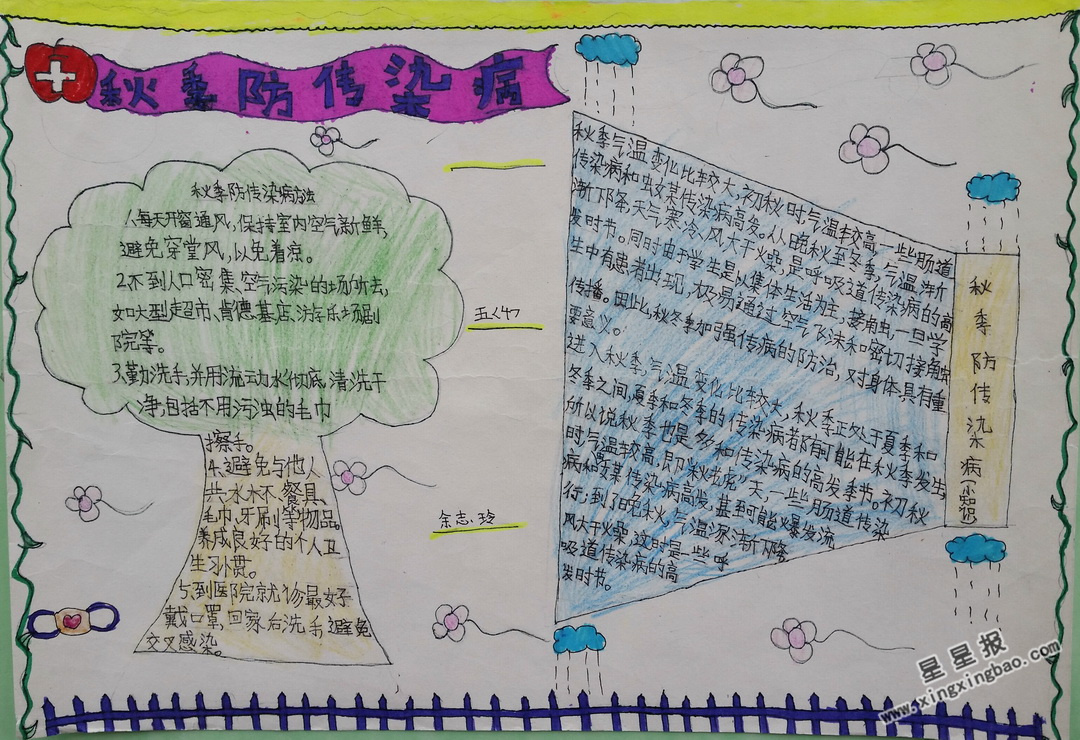 秋季防传染病
秋季防传染病方法
1.每天开窗通风,保持室内空气新鲜,
避免穿堂风,以免着凉。
2.不到人口密集,空气污染的场所去,
如大型超市、肯德基店、游乐场剧
院等。
3.勤洗手,并用流动水彻底清洗干
净,包括不用污浊的毛巾
擦手。
4.避免与他人
共水杯、餐具、
毛巾、牙刷等物品。
养成良好的个人卫
生习惯。
5.到医院就诊最好
戴口罩,回家后洗手避免
交叉感染。
五(4)
余志玲
秋季气温变化比较大,初秋时气温较高,一些肠道
传染病和虫媒传染病高发。从晚秋至冬季,气温渐
渐下降,天气寒冷,风大干燥,是呼吸道传染病的高
发时节。同时由于学生是以集体生活为主,接触虫,一旦学
生中有患者出现,极易通过空气飞沫和密切接触
传播。因此,秋冬季加强传病的防治,对身体具有重
要意义。
进入秋季,气温变化比较大,秋季正处于夏季和
冬季之间,夏季和冬季的传染病都有可能在秋季发生,
所以说秋季也是多种传染病的高发季节。初秋
时气温较高,即“秋老虎”天,一些肠道传染
病和虫媒传染病高发,甚至可能爆发流
行;到了晚秋,气温逐渐下降
风大干燥,这时是一些呼
吸道传染病的高
发时节。
秋季防传染病(小知识)
星星报
www.xingxingbao.com